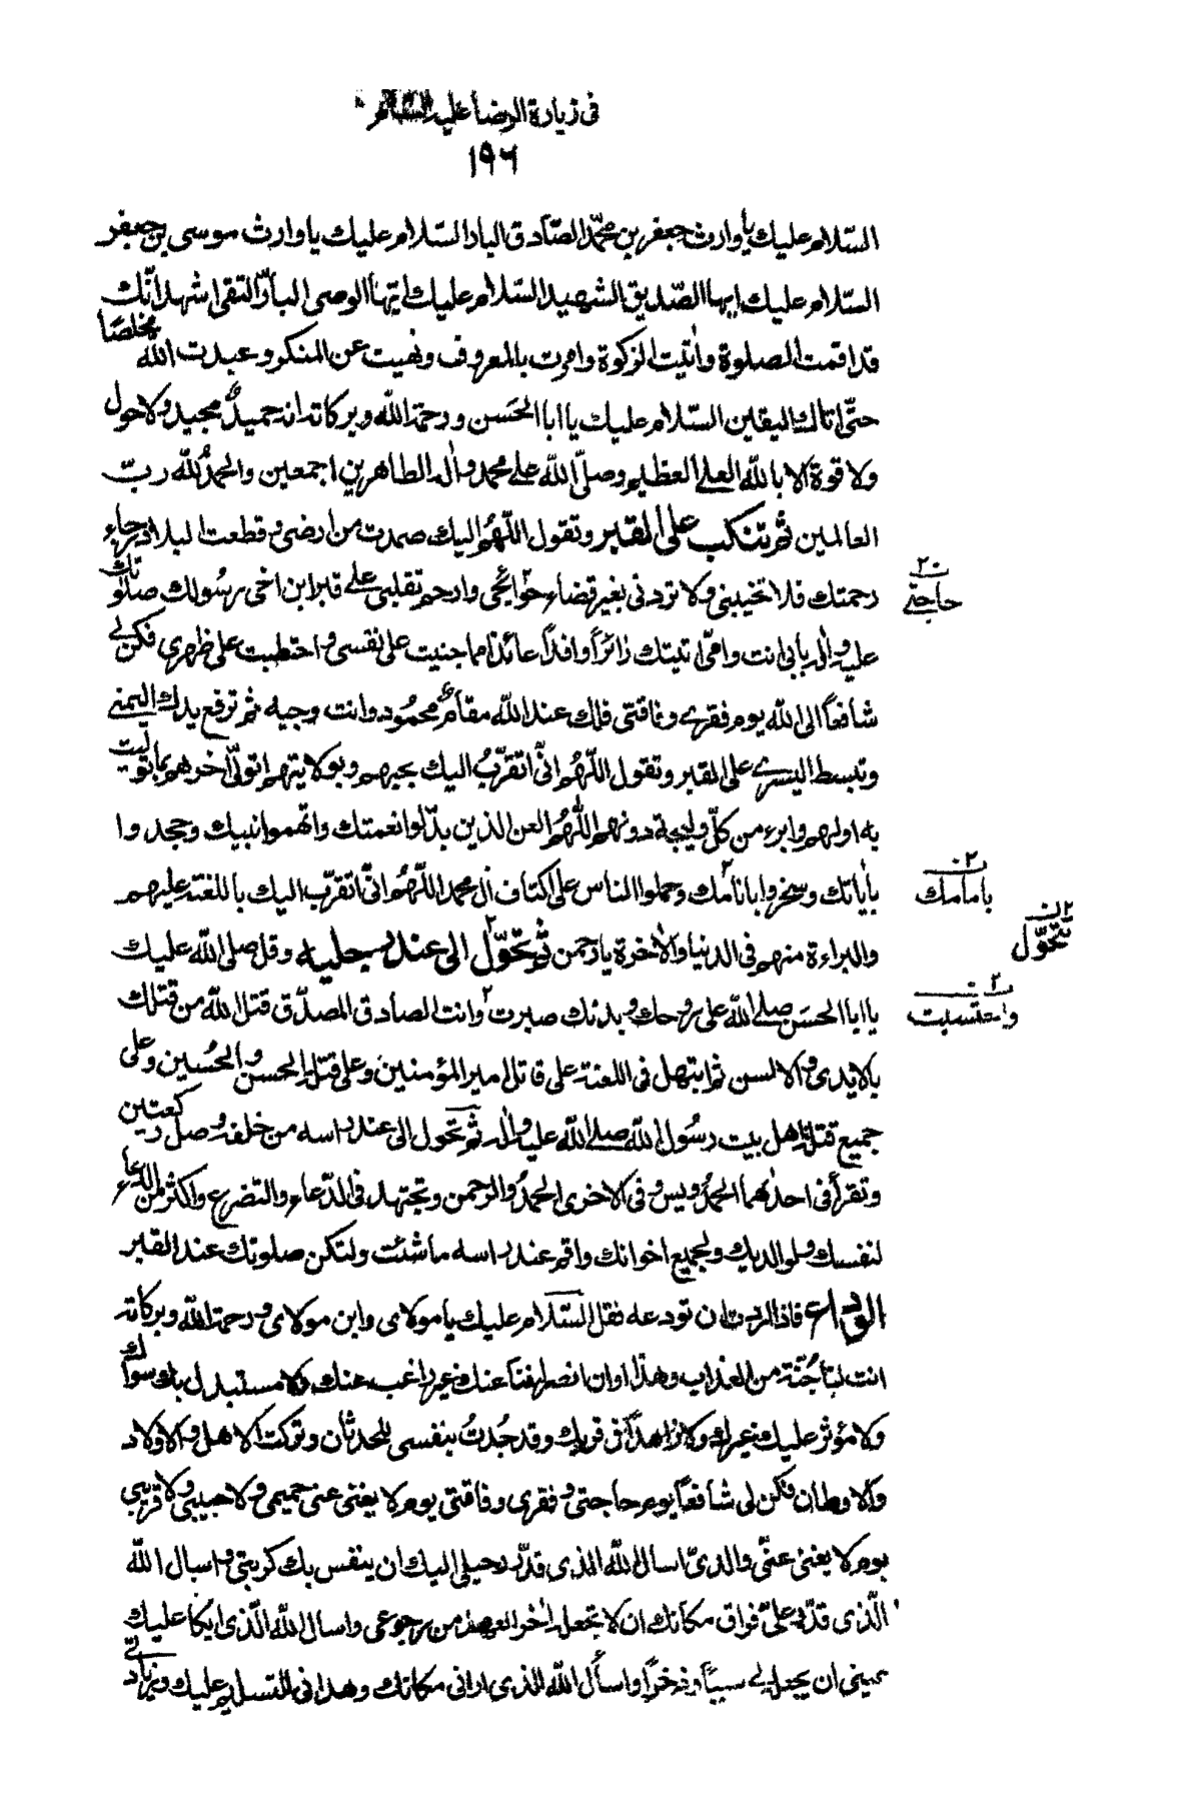 فى زيارة الرضا عليه السلام
١٩٦
السّلام عليك يا وارث جعفر بن محمّد الصّادق البار السّلام عليك يا وارث موسى بن جعفر
السّلام عليك ايها الصّديق الشهيد السّلام عليك ايّها الوصى البارّ التقى اشهد انّك
قد اقمت الصلوة واتيت الزكوة وامرت بالمعروف ونهيت عن المنكر وعبدت الله مخلصا
حتّى اتاك اليقين السّلام عليك يا ابا الحَسَن ورحمة الله وبركاته انه حميدٌ مجيد ولا حول
ولا قوة الا بالله العلى العظيم وصلّى الله على محمد واله الطاهرين اجمعين والحمدُ لله ربّ
العالمين ثم تنكب على القبر وتقول اللّهُم اليك صمدت من ارضى وقطعت البلاد رجاء
رحمتك فلا تخيبنى ولا تردنى بغير قضاء حوائجى وارحم تقلبى على قبر ابن اخى رسُولك صلواتك
عليه واله بابى انت وامّى اتيتك زائراً وافداً عائذا مما جنيت على نفسى واحتطبت على ظهرى فكن لى
شافعاً الى الله يوم فقرى وفاقتى فلك عند الله مقام محمُود وانت وجيه ثم ترفع يدك اليمنى
وتبسط اليسرى على القبر وتقول اللّهُم انّى اتقرّبُ اليك بحبهم وبولايتهم اتولّى اخرهم بما توليت
به اولهم وابرء من كلّ وليجة دونهم اللّهُم العن الذين بدّلوا نعمتك واتهموا نبيك وجحدوا
باياتك وسخروا بامامك وحملوا الناس على اكتاف ال محمد اللّهُم انّى اتقرّب اليك باللعنة عليهم
والبراءة منهم فى الدنيا والاخرة يا رحمن ثم تحوّل الى عند رجليه وقل صلى الله عليك
يا ابا الحسَن صلى الله على روحك وبدنك صبرت وانت الصادق المصدّق قتل الله من قتلك
بالايدى والالسن ثم ابتهل فى اللعنة على قاتل امير المؤمنين وعلى قتلة الحسن والحُسين وعلى
جميع قتلة اهل بيت رسُول الله صلى الله عليه واله ثم تحول الى عند راسه من خلفه وصل ركعتين
وتقرأ فى احدٰهما الحمدُ ويس وفى الاخرى الحمدُ والرحمن وتجتهد فى الدّعاء والتضرع واكثر من الدعاء
لنفسك ولوالديك ولجميع اخوانك واقم عند راسه ما شئت ولتكن صلوتك عند القبر
الوداع فاذا اردت ان تودعه فقل السّلام عليك يا مولاى وابن مولاى ورحمة الله وبركاته
انت لنا جُنّة من العذاب وهذا اوان انصرافنا عنك غير راغب عنك ولا مستبدل بك سواك
ولا مؤثر عليك غيرك ولا زاهداً فى قربك وقد جُدتُ بنفسى للحدثان وتركت الاهل والاولاد
والاوطان فكن لى شافعاً يوم حاجتى وفقرى وفاقتى يوم لا يغنى عنى حميمى ولا حبيبى ولا قريبى
يوم لا يغنى عنّى والدىّ اسال الله الذى قدّر رحيلى اليك ان ينفس بك كربتى واسال الله
الّذى قدّر علىّ فراق مكانك ان لا تجعله اخر العهد من رجوعى واسال الله الّذى ابكا عليك
عينى ان يجعله لى سبباً وذخراً واسأل الله الذى ارانى مكانك وهدانى للتسليم عليك وزيارتى
٢ن
حاجتى
٢ن
بامامك
٢ن
تتحوّل
٢ن
واحتسبت